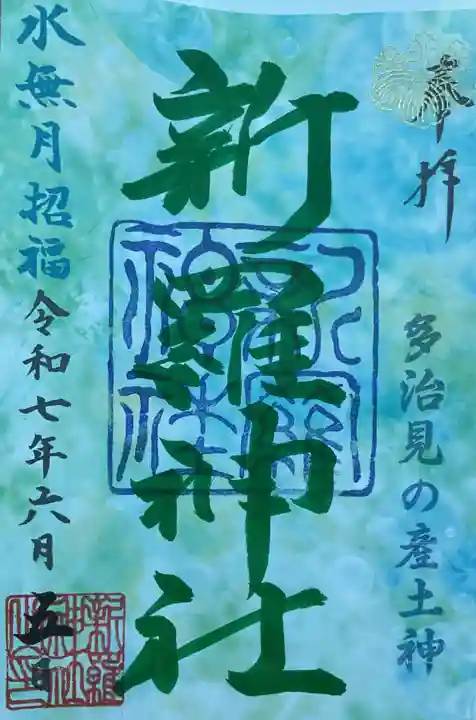 奉拝
多治見の産土神
新羅神社
水無月招福
令和七年六月五日
新羅神社之印